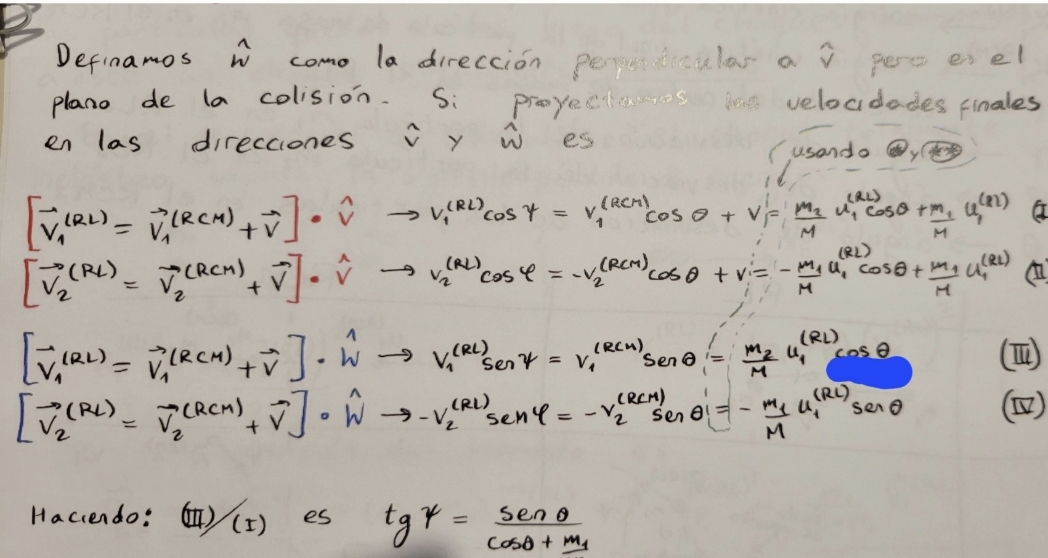 Definamos ŵ como la dirección perpendicular a v̂ pero en el
plano de la colisión. Si proyectamos las velocidades finales
en las direcciones v̂ y ŵ es
usando (*) y (**)
[v⃗₁^(RL) = v⃗₁^(RCM) + v⃗] • v̂ → v₁^(RL) cos ψ = v₁^(RCM) cos θ + v = m₂/M u₁^(RL) cosθ + m₁/M u₁^(RL) (I
[v⃗₂^(RL) = v⃗₂^(RCM) + v⃗] • v̂ → v₂^(RL) cos φ = -v₂^(RCM) cos θ + v = -m₁/M u₁^(RL) cosθ + m₁/M u₁^(RL) (II
[v⃗₁^(RL) = v⃗₁^(RCM) + v⃗] • ŵ → v₁^(RL) sen ψ = v₁^(RCM) sen θ = m₂/M u₁^(RL) cos θ (III)
[v⃗₂^(RL) = v⃗₂^(RCM) + v⃗] • ŵ → -v₂^(RL) sen φ = -v₂^(RCM) sen θ = - m₁/M u₁^(RL) sen θ (IV)
Haciendo: (III)/(I) es tg ψ = sen θ / cosθ + m₁